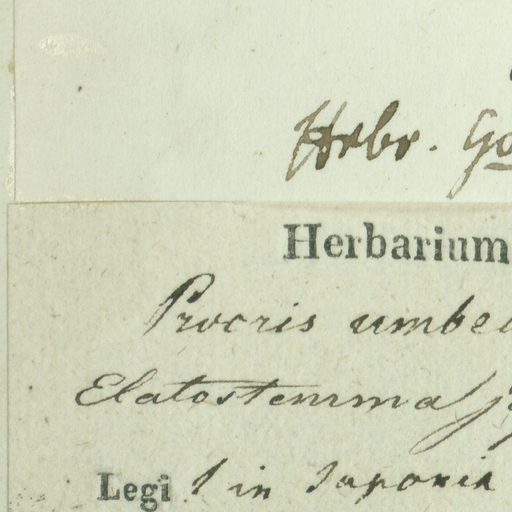 Hrbr. Go
Herbarium
Procris umbe
Elatostemma
Legi in Japonia